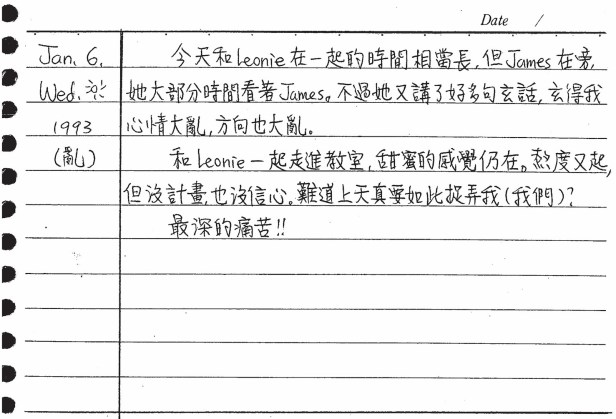 Date /
Jan. 6, 今天和Leonie在一起的時間相當長,但James在旁,
Wed. 她大部分時間看著James。不過她又講了好多句玄話,玄得我
1993 心情大亂,方向也大亂。
(亂) 和Leonie一起走進教室,甜蜜的感覺仍在。熱度又起,
但沒計畫,也沒信心。難道上天真要如此捉弄我(我們)?
最深的痛苦!!